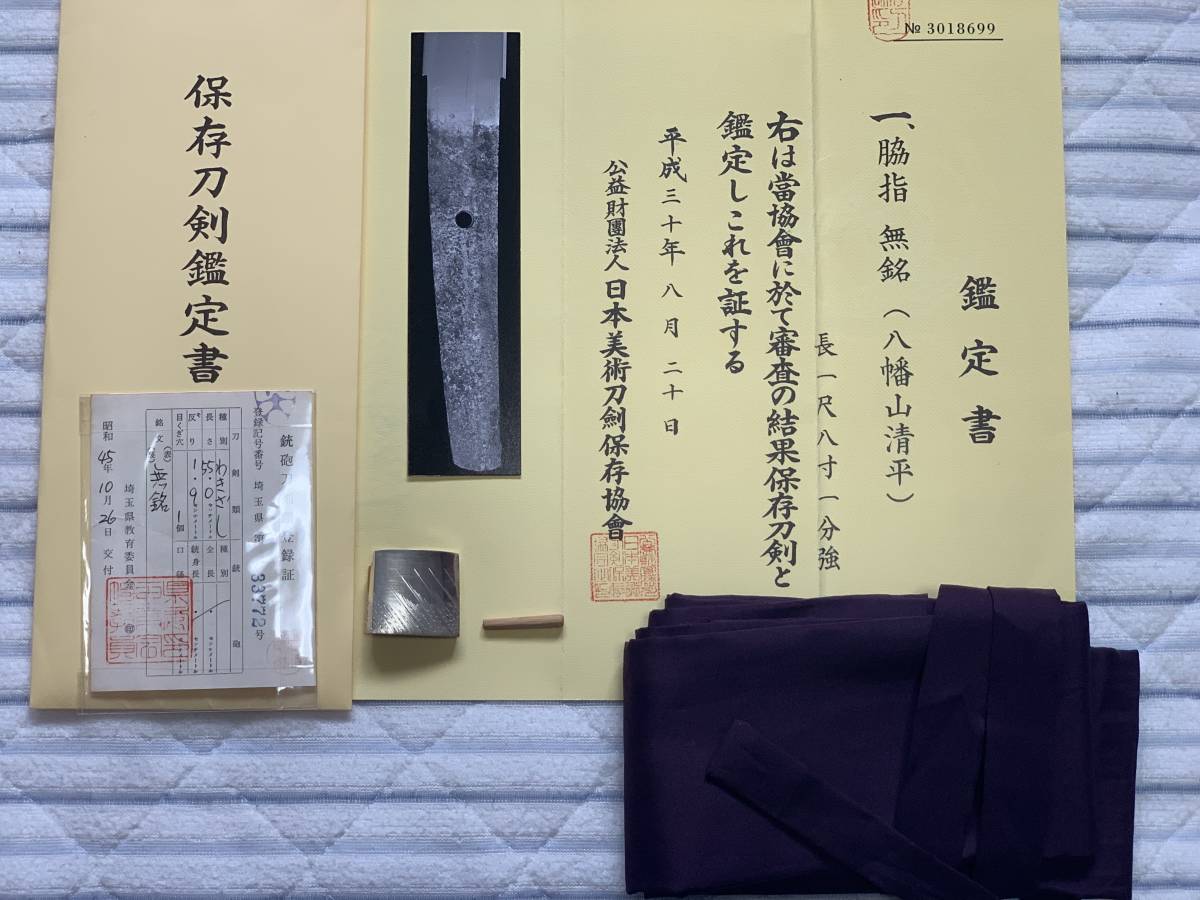 保存刀剣鑑定書
№ 3018699
鑑定書
一、脇指 無銘（八幡山清平）
長一尺八寸一分強
右は當協會に於て審査の結果保存刀剣と
鑑定しこれを証する
平成三十年八月二十日
公益財團法人日本美術刀劍保存協會
銃砲刀
登録証
登録記号番号 埼玉県 第33772号
刀剣類
銃砲
種別 わきざし
種別
長さ 55.0 センチメートル
全長 センチメートル
反り 1.9 センチメートル
銃身長 センチメートル
目くぎ穴 1個
口径
銘文 (表) 無銘
昭和45年10月26日 交付
埼玉県教育委員会